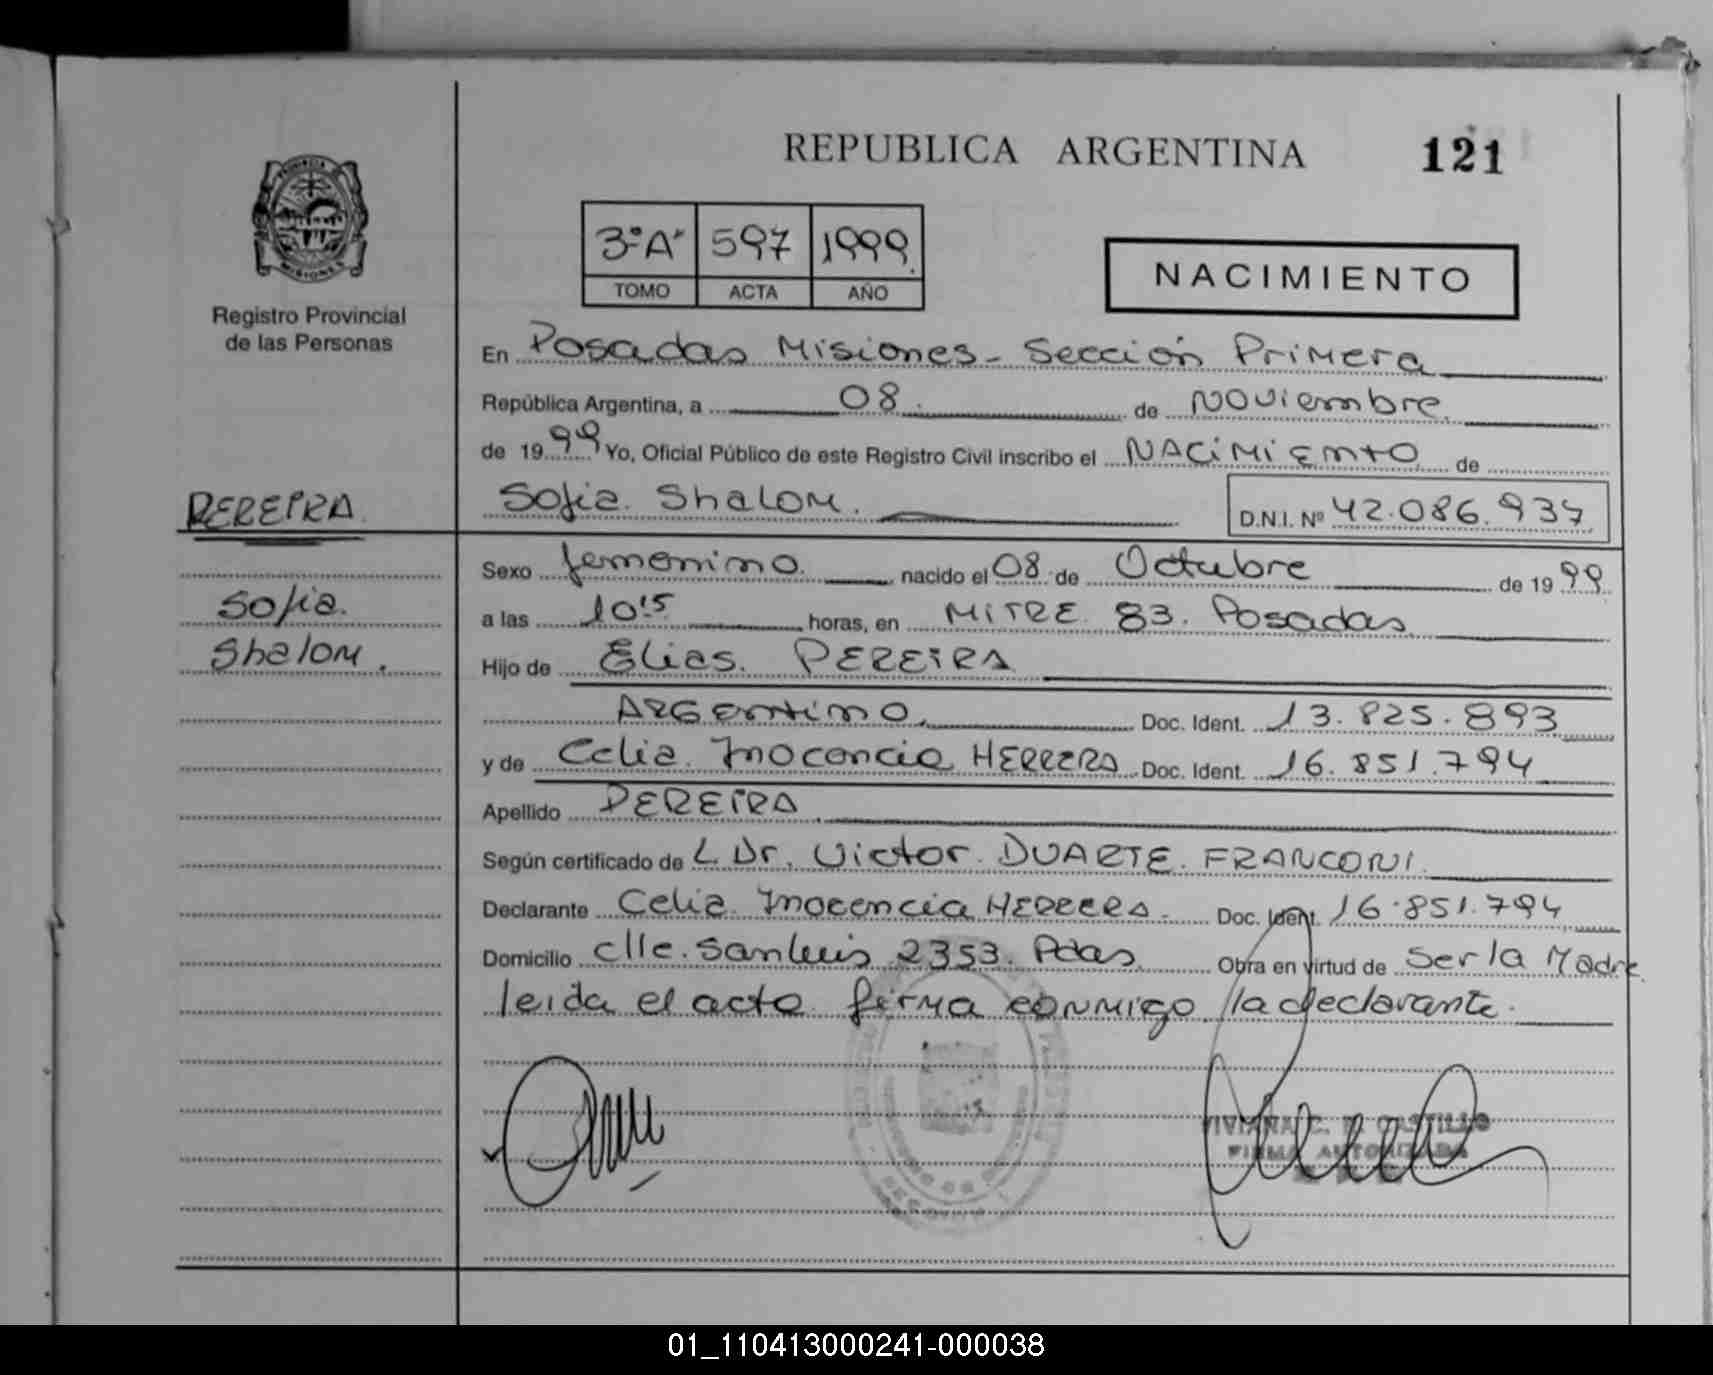 REPUBLICA ARGENTINA 121
PROVINCIA
MISIONES
Registro Provincial
de las Personas
3º"A" 597 1999
TOMO ACTA AÑO
NACIMIENTO
En Posadas Misiones - Sección Primera
República Argentina, a 08 de Noviembre
de 1999 Yo, Oficial Público de este Registro Civil inscribo el NACIMIENTO de
PEREIRA
Sofia Shalom. D.N.I. Nº 42.086.937
Sofia
Shalom.
Sexo femenino nacido el 08 de Octubre de 1999
a las 10'15 horas, en MITRE 83. Posadas
Hijo de Elias PEREIRA
Argentino Doc. Ident. 13.825.893
y de Celia Inocencia HERRERA Doc. Ident. 16.851.794
Apellido PEREIRA
Según certificado de L Dr. Victor DUARTE FRANCONI
Declarante Celia Inocencia HERRERA Doc. Ident. 16.851.794
Domicilio clle. San Luis 2353. Pdas Obra en virtud de Ser la Madre
leida el acta firma conmigo la declarante.
VIVIANA C. CASTILLO
FIRMA AUTORIZADA
01_110413000241-000038